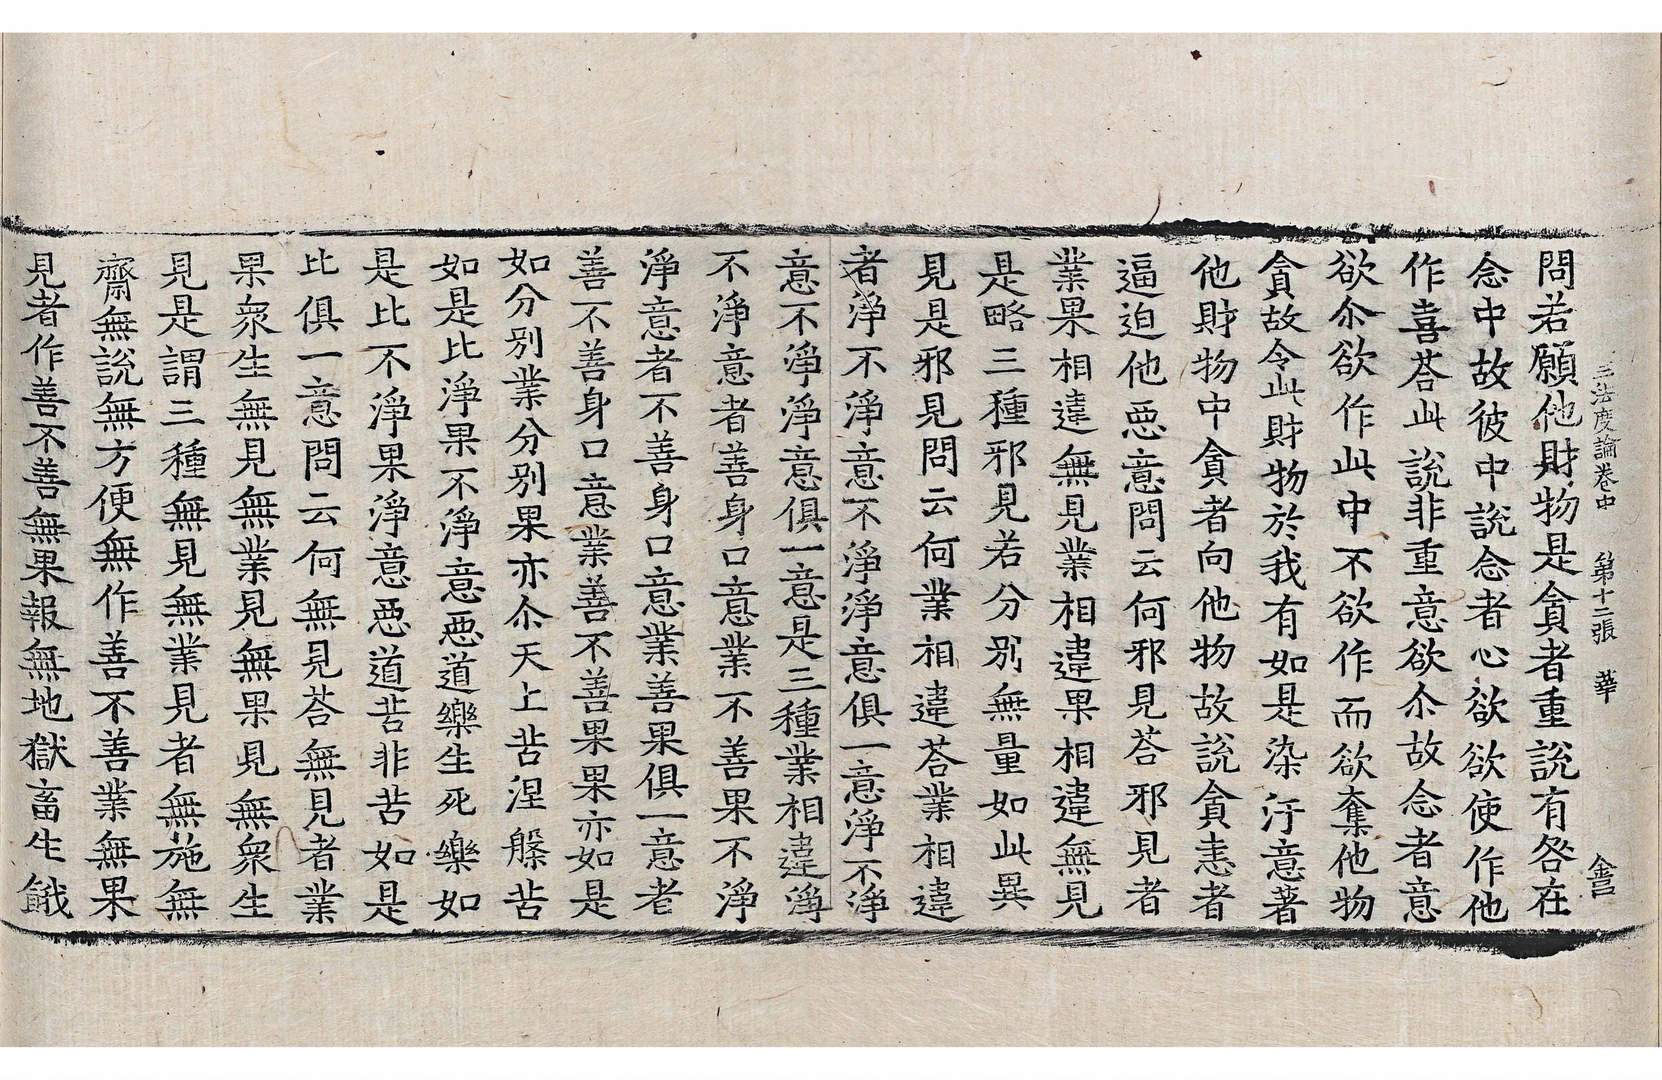 三法度論卷中 第十二張 華
問若願他財物是貪者重說有咎在
念中故彼中說念者心欲欲使作他
作喜荅此說非重意欲尒故念者意
欲尒欲作此中不欲作而欲奪他物
貪故令此財物於我有如是染汙意著
他財物中貪者向他物故說貪恚者
逼迫他悪意問云何邪見荅邪見者
業果相違無見業相違果相違無見
是略三種邪見若分別無量如此異
見是邪見問云何業相違荅業相違
者淨不淨意不淨淨意俱一意淨不淨
意不淨淨意俱一意是三種業相違淨
不淨意者善身口意業不善果不淨
淨意者不善身口意業善果俱一意者
善不善身口意業善不善果果亦如是
如分別業分別果亦尒天上苦涅槃苦
如是比淨果不淨意悪道樂生死樂如
是比不淨果淨意悪道苦非苦如是
比俱一意問云何無見荅無見者業
果衆生無見無業見無果見無衆生
見是謂三種無見無業見者無施無
齋無說無方便無作善不善業無果
見者作善不善無果報無地獄畜生餓